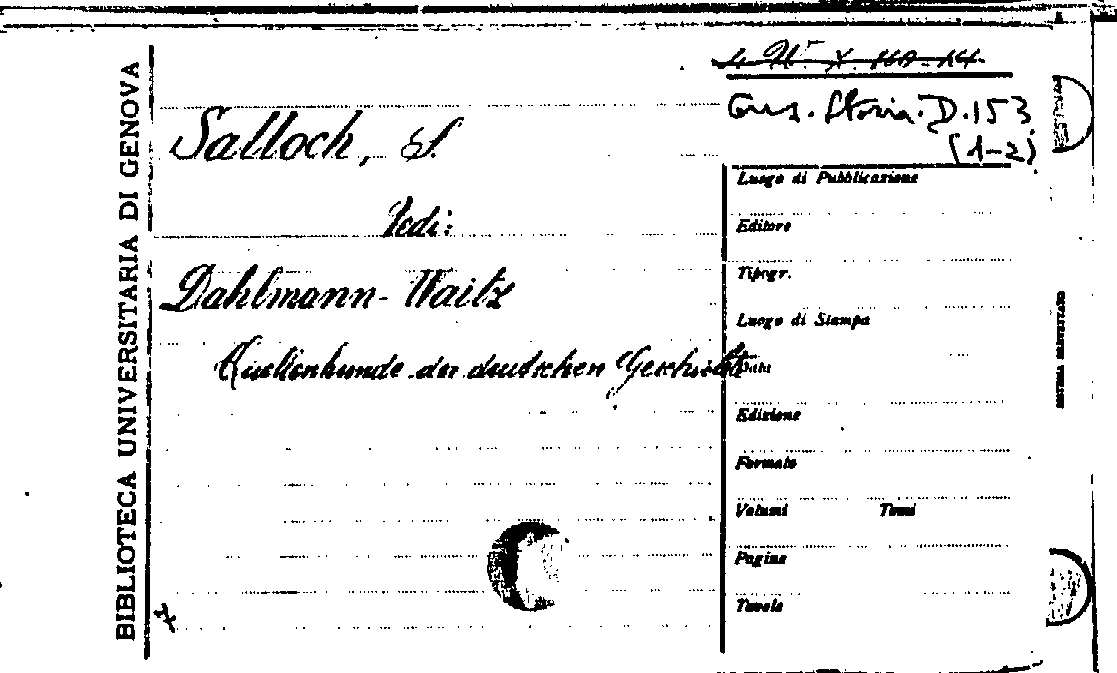 BIBLIOTECA UNIVERSITARIA DI GENOVA
Cons. Storia. D.153
(1-2)
Salloch, S.
Vedi:
Dahlmann-Waitz
Quellenkunde der deutschen Geschichte
Luogo di Pubblicazione
Editore
Tipogr.
Luogo di Stampa
Data
Edizione
Formato
Volumi Tomi
Pagine
Tavole